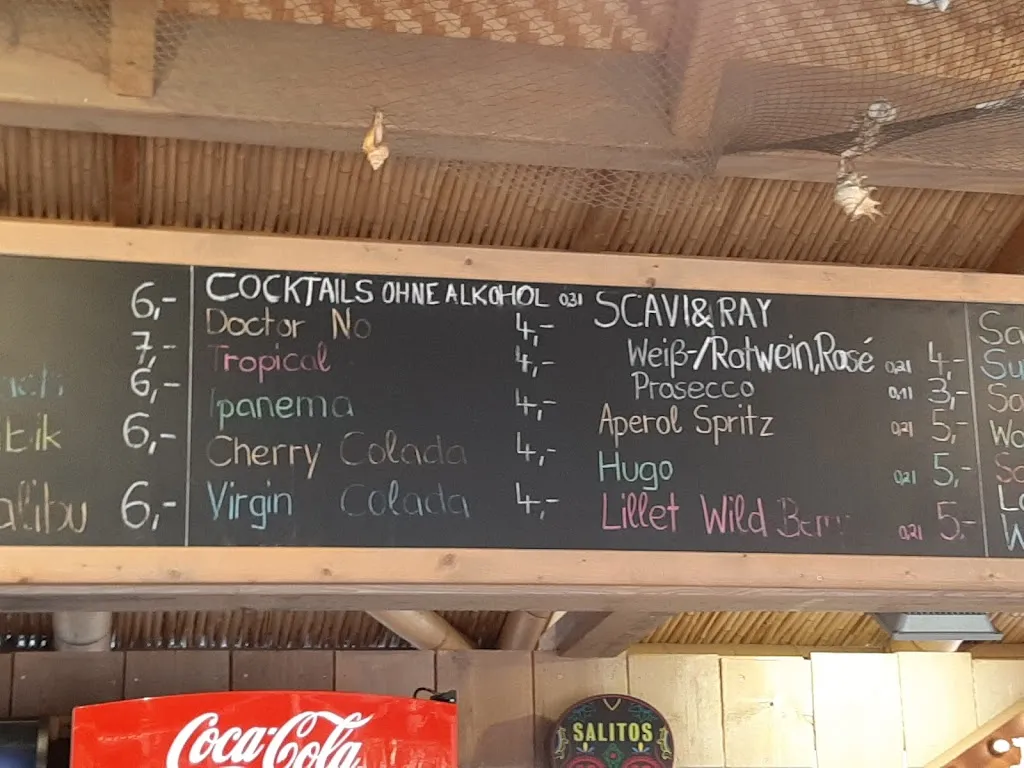 6,-
7,-
6,-
6,-
6,-
COCKTAILS OHNE ALKOHOL 0,3l
Doctor No 4,-
Tropical 4,-
Ipanema 4,-
Cherry Colada 4,-
Virgin Colada 4,-
SCAVI & RAY
Weiß-/Rotwein, Rosé 0,2l 4,-
Prosecco 0,1l 3,-
Aperol Spritz 0,2l 5,-
Hugo 0,2l 5,-
Lillet Wild Berry 0,2l 5,-
Coca-Cola
SALITOS